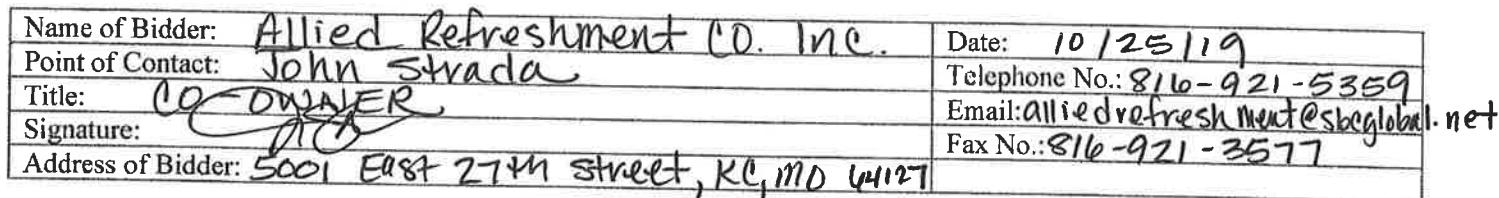 Name of Bidder: Allied Refreshment CO. Inc.
Date: 10/25/19
Point of Contact: John Strada
Telephone No.: 816-921-5359
Title: CO-OWNER
Email: alliedrefreshment@sbcglobal.net
Signature:
Fax No.: 816-921-3577
Address of Bidder: 5001 East 27th Street, KC, MO 64127